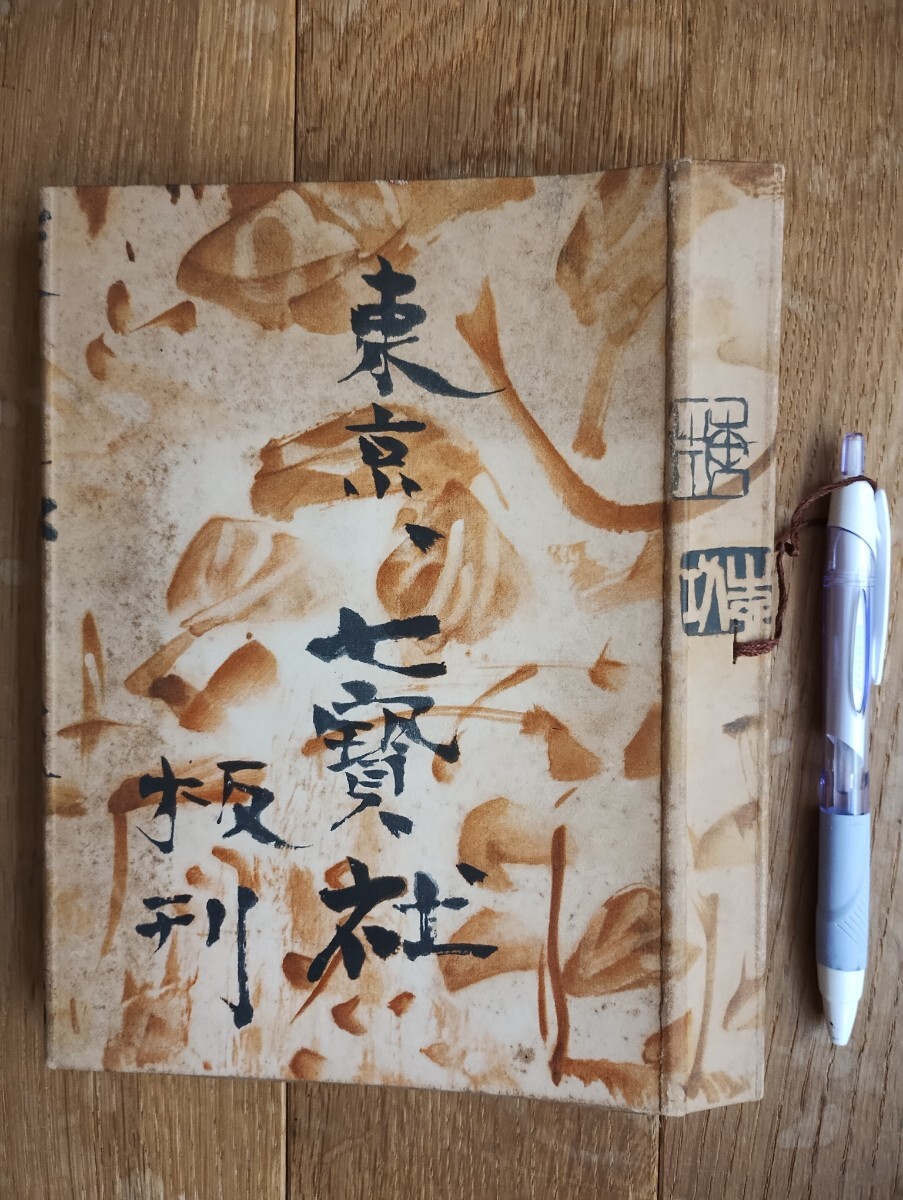 東京、七寳社
板刊